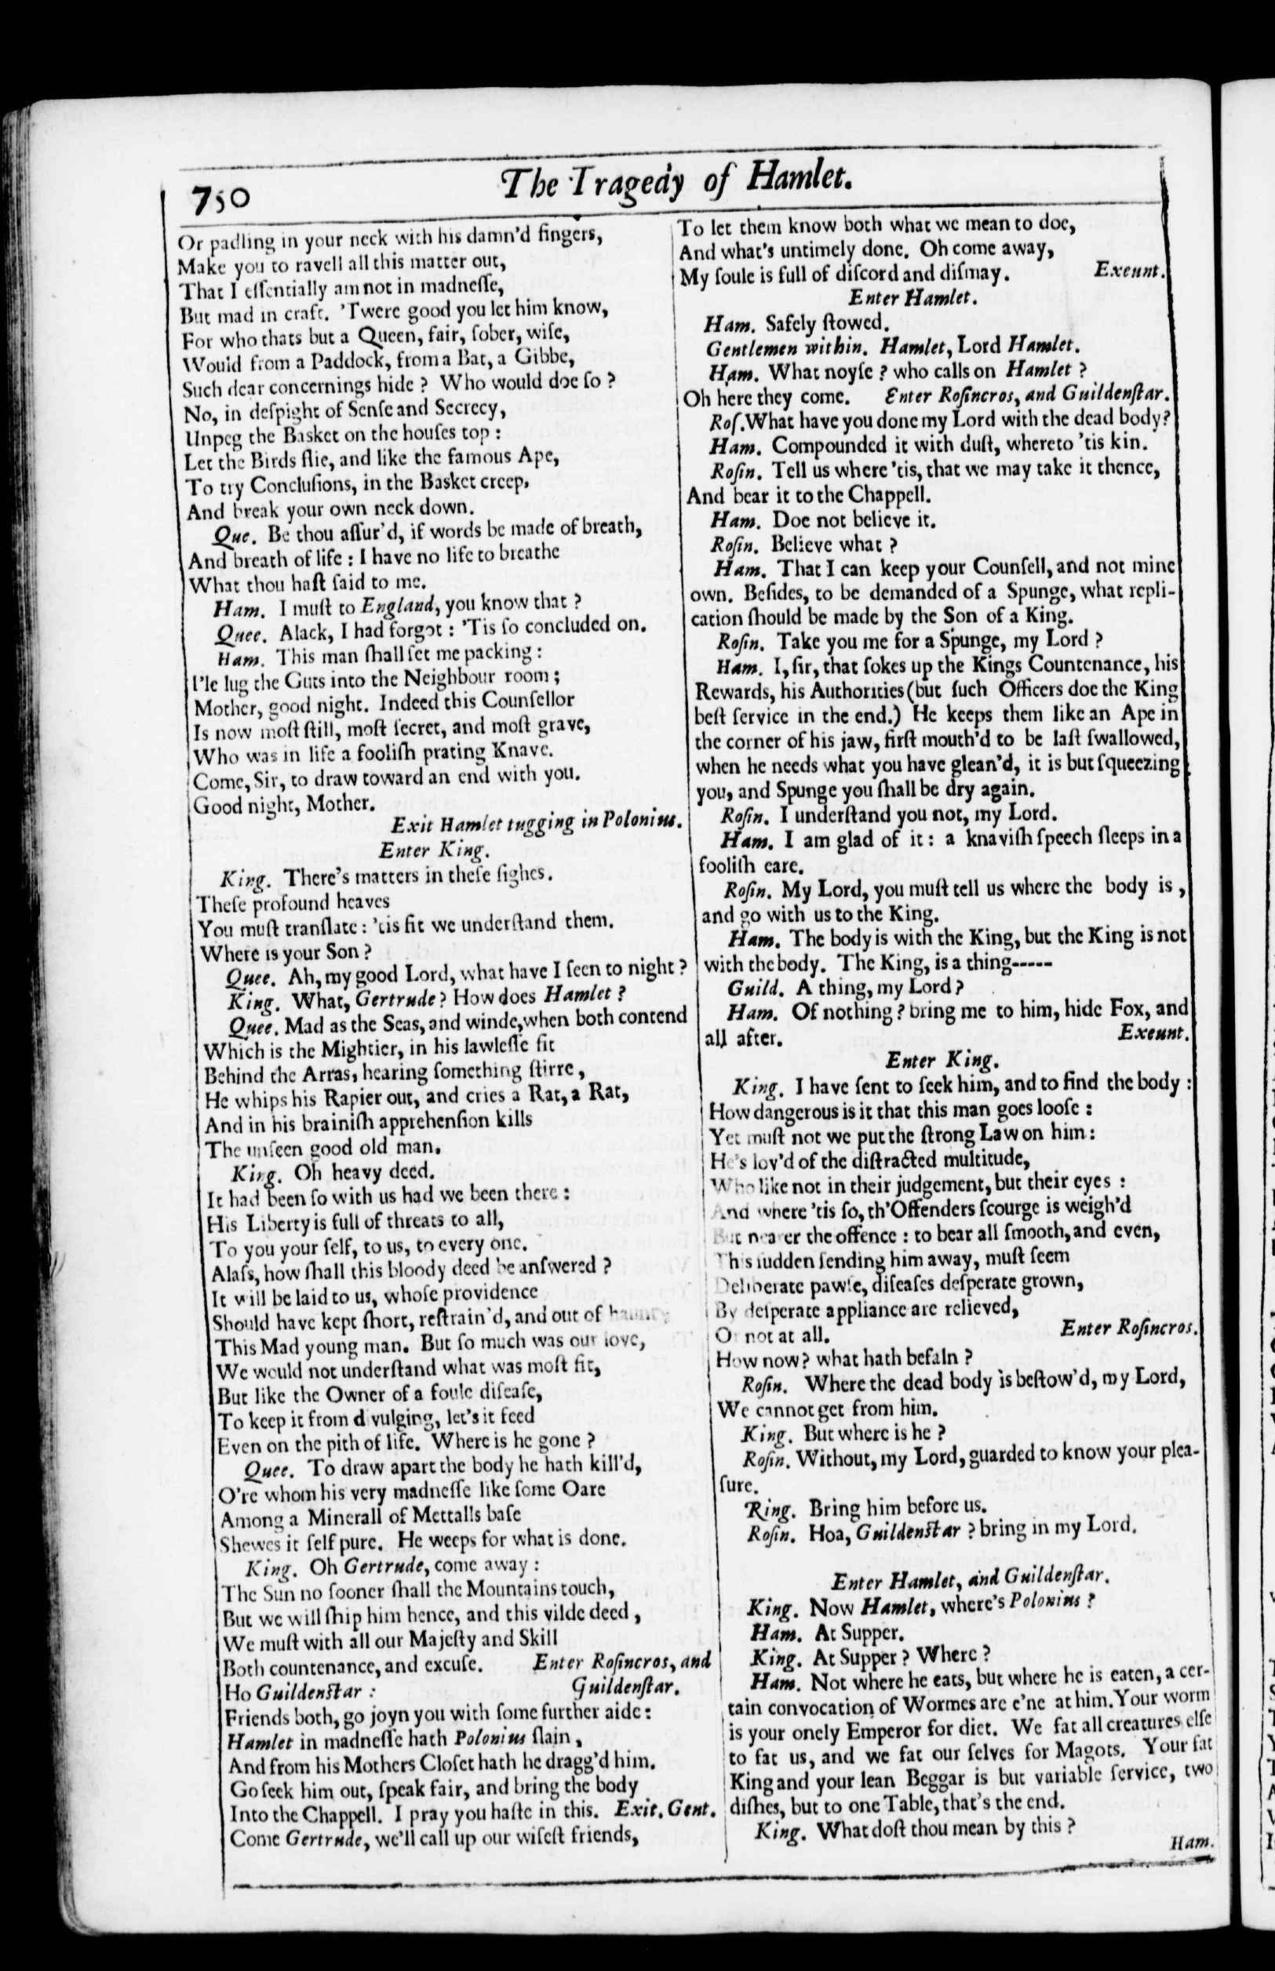 750
The Tragedy of Hamlet.
Or padling in your neck with his damn'd fingers,
Make you to ravell all this matter out,
That I eſſentially am not in madneſſe,
But mad in craft. 'Twere good you let him know,
For who thats but a Queen, fair, ſober, wiſe,
Would from a Paddock, from a Bat, a Gibbe,
Such dear concernings hide? Who would doe ſo?
No, in deſpight of Senſe and Secrecy,
Unpeg the Basket on the houſes top:
Let the Birds flie, and like the famous Ape,
To try Concluſions, in the Basket creep,
And break your own neck down.
Que. Be thou aſſur'd, if words be made of breath,
And breath of life: I have no life to breathe
What thou haſt ſaid to me.
Ham. I muſt to England, you know that?
Quee. Alack, I had forgot: 'Tis ſo concluded on.
Ham. This man ſhall ſet me packing:
I'le lug the Guts into the Neighbour room;
Mother, good night. Indeed this Counſellor
Is now moſt ſtill, moſt ſecret, and moſt grave,
Who was in life a fooliſh prating Knave.
Come, Sir, to draw toward an end with you.
Good night, Mother.
Exit Hamlet tugging in Polonius.
Enter King.
King. There's matters in theſe ſighes.
Theſe profound heaves
You muſt tranſlate: 'tis fit we underſtand them.
Where is your Son?
Quee. Ah, my good Lord, what have I ſeen to night?
King. What, Gertrude? How does Hamlet?
Quee. Mad as the Seas, and winde, when both contend
Which is the Mightier, in his lawleſſe fit
Behind the Arras, hearing ſomething ſtirre,
He whips his Rapier out, and cries a Rat, a Rat,
And in his brainiſh apprehenſion kills
The unſeen good old man.
King. Oh heavy deed.
It had been ſo with us had we been there:
His Liberty is full of threats to all,
To you your ſelf, to us, to every one.
Alaſs, how ſhall this bloody deed be anſwered?
It will be laid to us, whoſe providence
Should have kept ſhort, reſtrain'd, and out of haunt,
This Mad young man. But ſo much was our love,
We would not underſtand what was moſt fit,
But like the Owner of a foule diſeaſe,
To keep it from divulging, let's it feed
Even on the pith of life. Where is he gone?
Quee. To draw apart the body he hath kill'd,
O're whom his very madneſſe like ſome Oare
Among a Minerall of Mettalls baſe
Shewes it ſelf pure. He weeps for what is done.
King. Oh Gertrude, come away:
The Sun no ſooner ſhall the Mountains touch,
But we will ſhip him hence, and this vilde deed,
We muſt with all our Majeſty and Skill
Both countenance, and excuſe. Enter Roſincros, and
Ho Guildenſtar: Guildenſtar.
Friends both, go joyn you with ſome further aide:
Hamlet in madneſſe hath Polonius ſlain,
And from his Mothers Cloſet hath he dragg'd him.
Go ſeek him out, ſpeak fair, and bring the body
Into the Chappell. I pray you haſte in this. Exit. Gent.
Come Gertrude, we'll call up our wiſeſt friends,
To let them know both what we mean to doe,
And what's untimely done. Oh come away,
My ſoule is full of diſcord and diſmay. Exeunt.
Enter Hamlet.
Ham. Safely ſtowed.
Gentlemen within. Hamlet, Lord Hamlet.
Ham. What noyſe? who calls on Hamlet?
Oh here they come. Enter Roſincros, and Guildenſtar.
Roſ. What have you done my Lord with the dead body?
Ham. Compounded it with duſt, whereto 'tis kin.
Roſin. Tell us where 'tis, that we may take it thence,
And bear it to the Chappell.
Ham. Doe not believe it.
Roſin. Believe what?
Ham. That I can keep your Counſell, and not mine
own. Beſides, to be demanded of a Spunge, what repli-
cation ſhould be made by the Son of a King.
Roſin. Take you me for a Spunge, my Lord?
Ham. I, ſir, that ſokes up the Kings Countenance, his
Rewards, his Authorities (but ſuch Officers doe the King
beſt ſervice in the end.) He keeps them like an Ape in
the corner of his jaw, firſt mouth'd to be laſt ſwallowed,
when he needs what you have glean'd, it is but ſqueezing
you, and Spunge you ſhall be dry again.
Roſin. I underſtand you not, my Lord.
Ham. I am glad of it: a knaviſh ſpeech ſleeps in a
fooliſh eare.
Roſin. My Lord, you muſt tell us where the body is,
and go with us to the King.
Ham. The body is with the King, but the King is not
with the body. The King, is a thing-----
Guild. A thing, my Lord?
Ham. Of nothing? bring me to him, hide Fox, and
all after. Exeunt.
Enter King.
King. I have ſent to ſeek him, and to find the body:
How dangerous is it that this man goes looſe:
Yet muſt not we put the ſtrong Law on him:
He's lov'd of the diſtracted multitude,
Who like not in their judgement, but their eyes:
And where 'tis ſo, th'Offenders ſcourge is weigh'd
But nearer the offence: to bear all ſmooth, and even,
This ſudden ſending him away, muſt ſeem
Deliberate pawſe, diſeaſes deſperate grown,
By deſperate appliance are relieved,
Or not at all. Enter Roſincros.
How now? what hath befaln?
Roſin. Where the dead body is beſtow'd, my Lord,
We cannot get from him.
King. But where is he?
Roſin. Without, my Lord, guarded to know your plea-
ſure.
King. Bring him before us.
Roſin. Hoa, Guildenſtar? bring in my Lord.
Enter Hamlet, and Guildenſtar.
King. Now Hamlet, where's Polonius?
Ham. At Supper.
King. At Supper? Where?
Ham. Not where he eats, but where he is eaten, a cer-
tain convocation of Wormes are e'ne at him. Your worm
is your onely Emperor for diet. We fat all creatures elſe
to fat us, and we fat our ſelves for Magots. Your fat
King and your lean Beggar is but variable ſervice, two
diſhes, but to one Table, that's the end.
King. What doſt thou mean by this?
Ham.